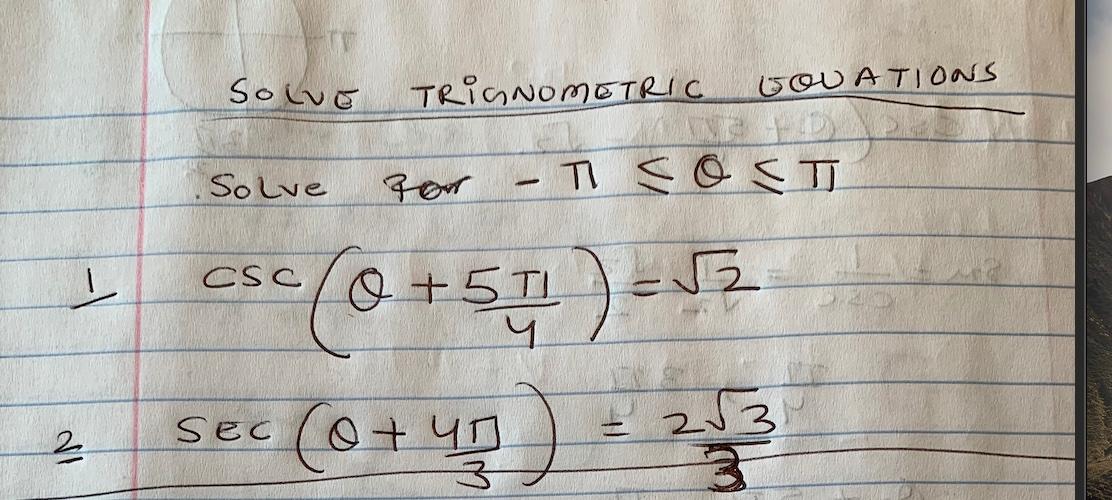 SOLVE TRIGNOMETRIC EQUATIONS
.Solve for - π ≤ θ ≤ π
1 CSC (θ + 5π/4) = √2
2 SEC (θ + 4π/3) = 2√3/3